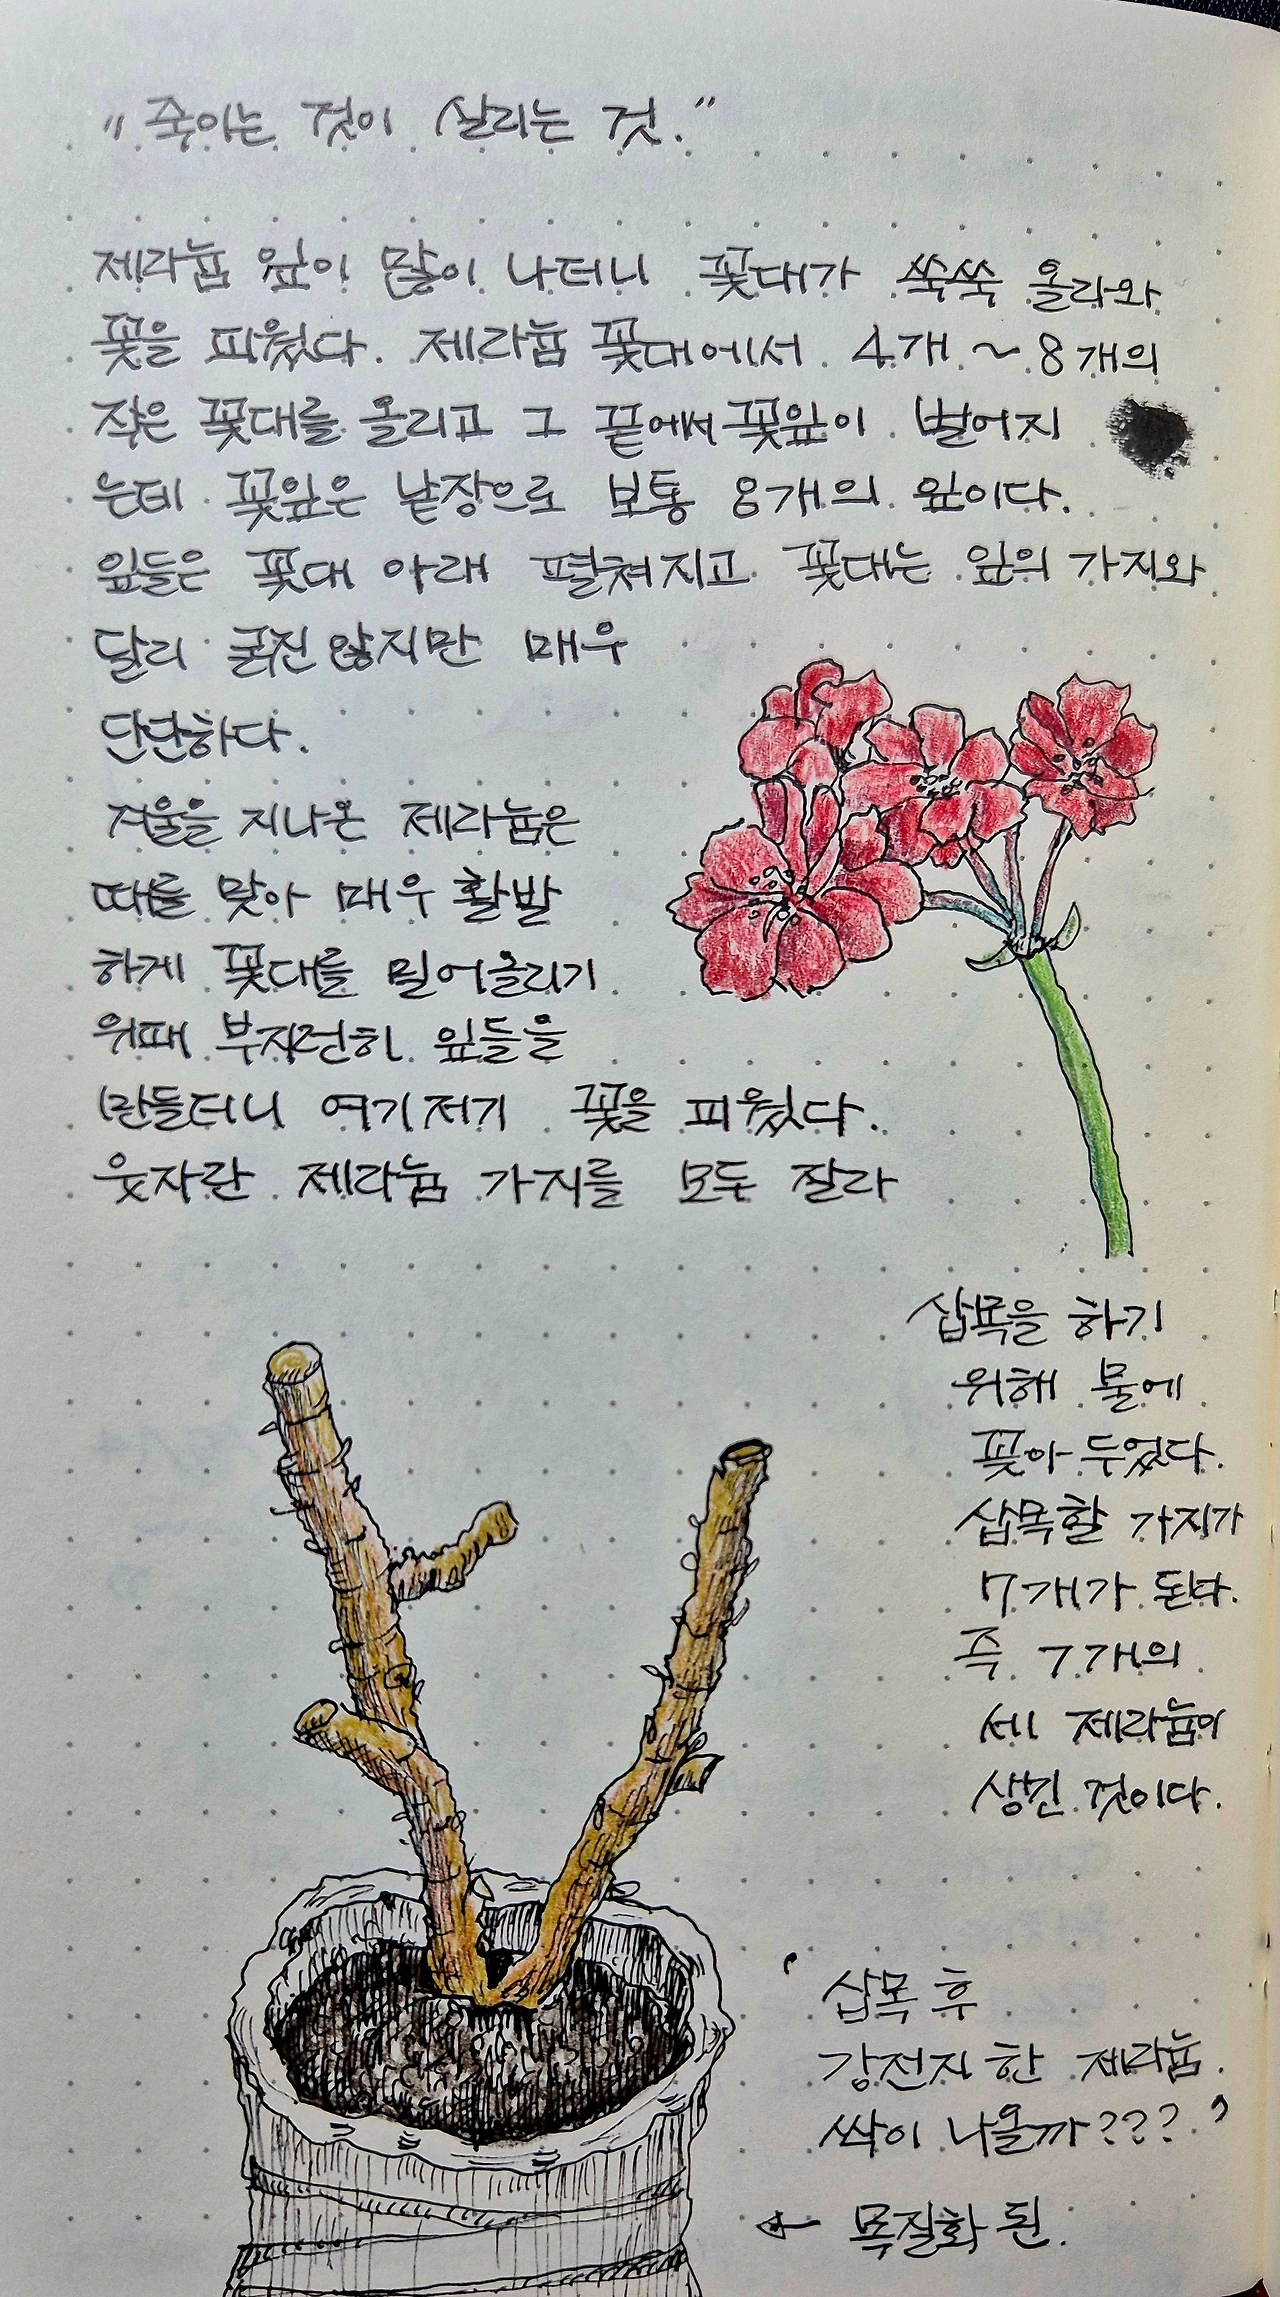 "죽이는 것이 살리는 것."
제라늄 잎이 많이 나더니 꽃대가 쑥쑥 올라와
꽃을 피웠다. 제라늄 꽃대에서 4개 ~ 8개의
작은 꽃대를 올리고 그 끝에서 꽃잎이 벌어지
는데 꽃잎은 낱장으로 보통 8개의 잎이다.
잎들은 꽃대 아래 펼쳐지고 꽃대는 잎의 가지와
달리 굵진 않지만 매우
단단하다.
겨울을 지나온 제라늄은
때를 맞아 매우 활발
하게 꽃대를 밀어올리기
위때 부지런히 잎들을
만들더니 여기저기 꽃을 피웠다.
웃자란 제라늄 가지를 모두 잘라
삽목을 하기
위해 물에
꽂아 두었다.
삽목할 가지가
7개가 된다.
즉 7개의
새 제라늄이
생긴 것이다.
' 삽목 후
강전지 한 제라늄.
싹이 나올까??? '
← 목질화 된.